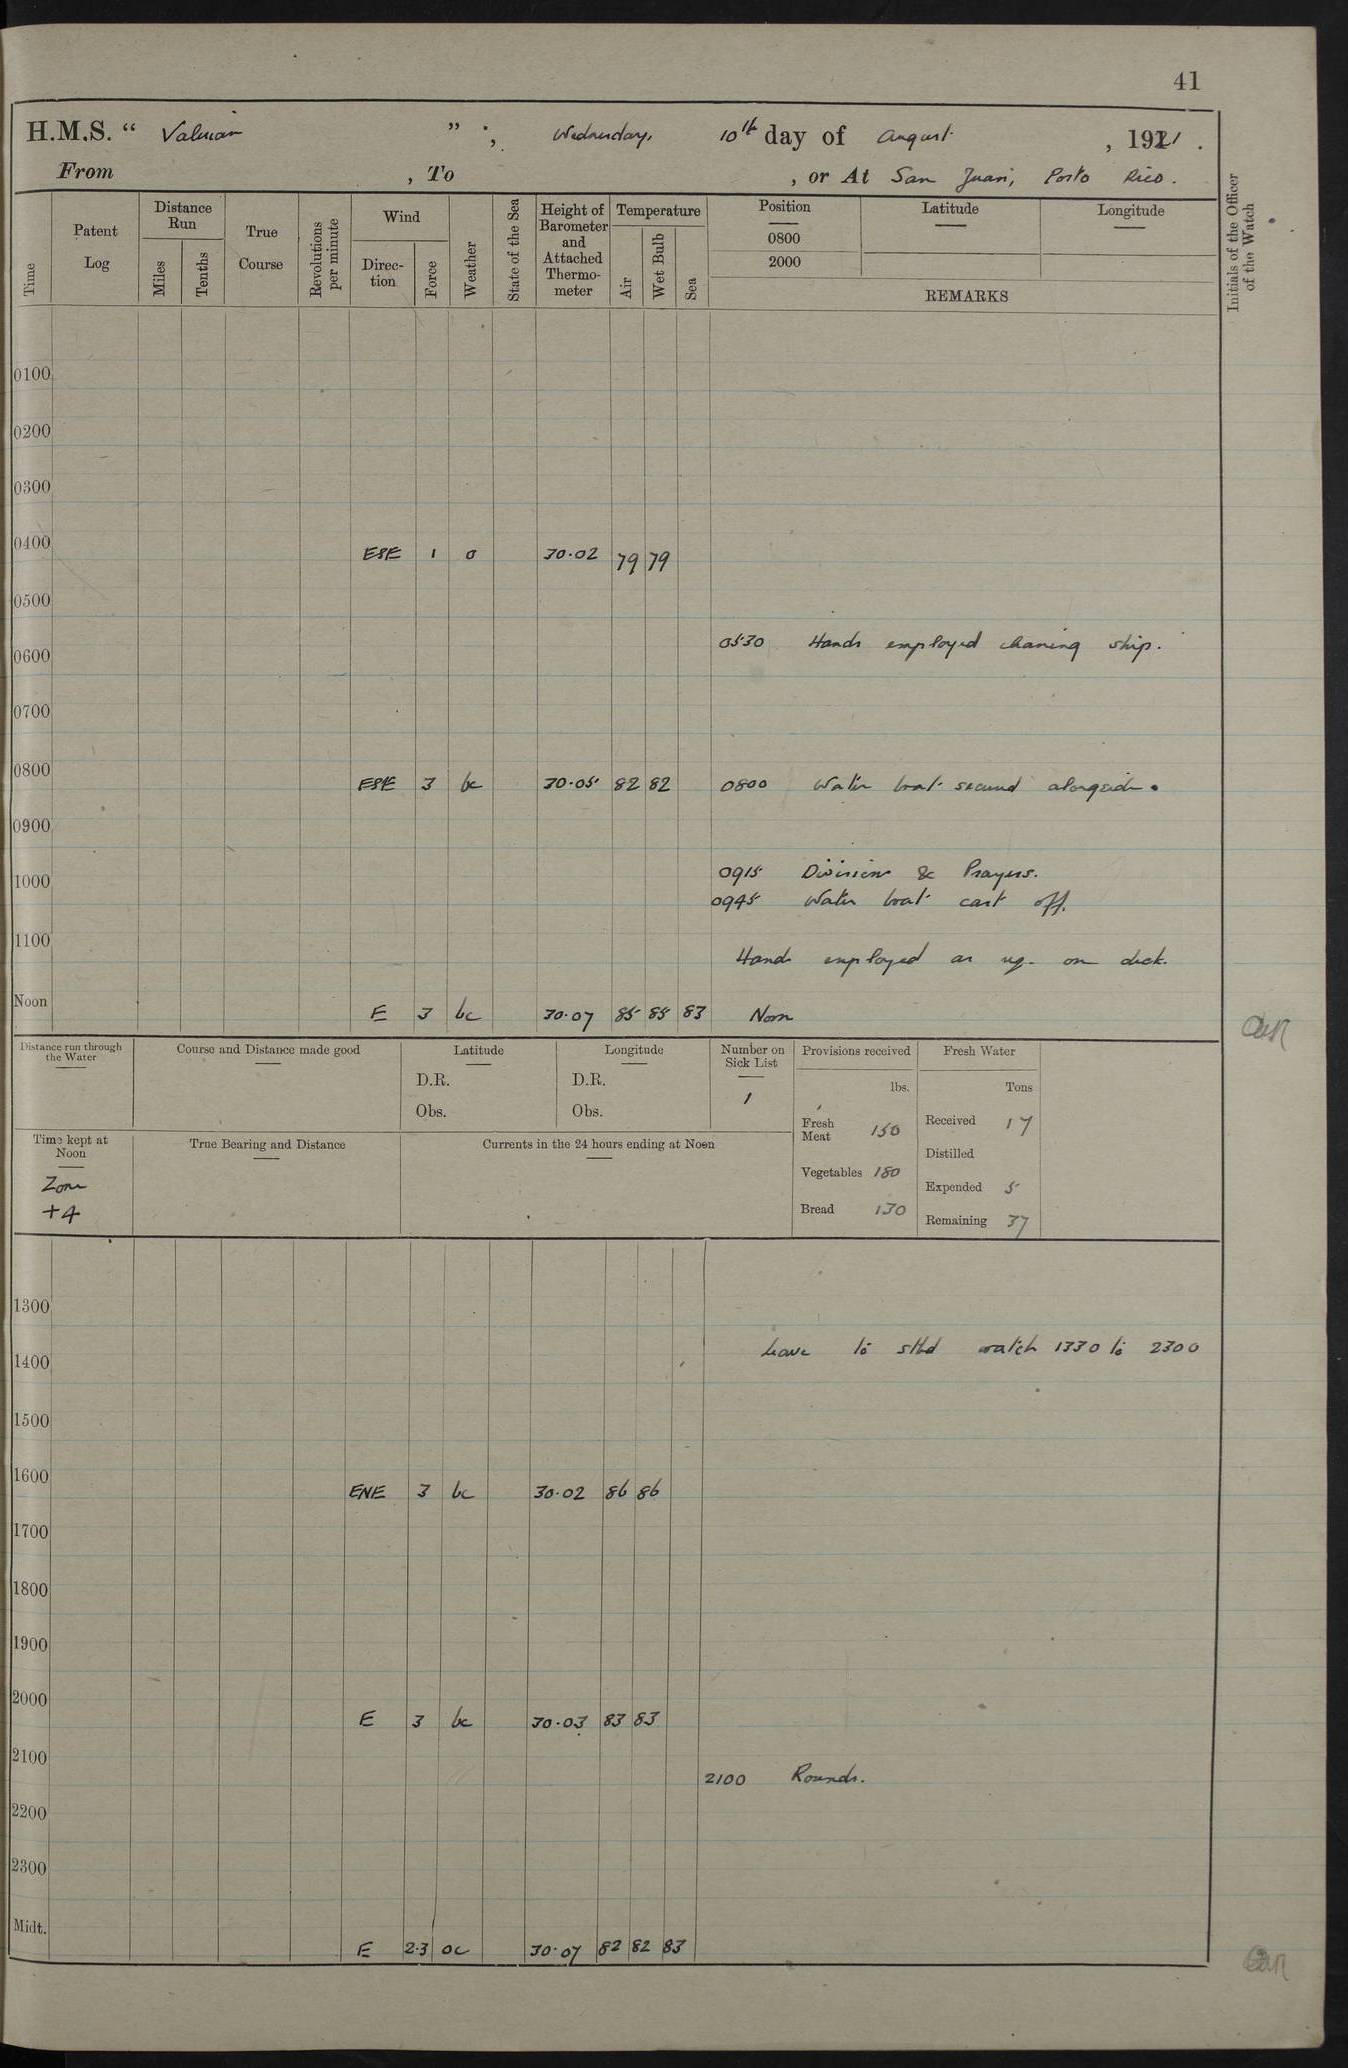 41
H.M.S. " Valerian " ; Wednesday, 10th day of August , 1921 .
From , To , or At San Juan, Porto Rico.
Initials of the Officer of the Watch
Time Patent Log Distance Run Miles Tenths True Course Revolutions per minute Wind Direction Force Weather State of the Sea Height of Barometer and Attached Thermometer Temperature Air Wet Bulb Sea Position 0800 2000 Latitude Longitude
REMARKS
0100
0200
0300
0400 ESE 1 o 30.02 79 79
0500
0530 Hands employed cleaning ship.
0600
0700
0800 ESE 3 bc 30.05 82 82 0800 Water boat secured alongside.
0900
0915 Divisions & Prayers.
1000
0945 Water boat cast off.
1100
Hands employed as req. on deck.
Noon E 3 bc 30.07 85 85 83 Noon
Distance run through the Water Course and Distance made good Latitude Longitude Number on Sick List Provisions received Fresh Water
D.R. D.R. lbs. Tons
Obs. Obs. 1
Fresh Meat 150 Received 17
Time kept at Noon True Bearing and Distance Currents in the 24 hours ending at Noon
Distilled
Vegetables 180
Zone Expended 5
+4 Bread 130 Remaining 37
1300
Leave to stbd watch 1330 to 2300
1400
1500
1600 ENE 3 bc 30.02 86 86
1700
1800
1900
2000 E 3 bc 30.03 83 83
2100
2100 Rounds.
2200
2300
Midt. E 2.3 oc 30.07 82 82 83